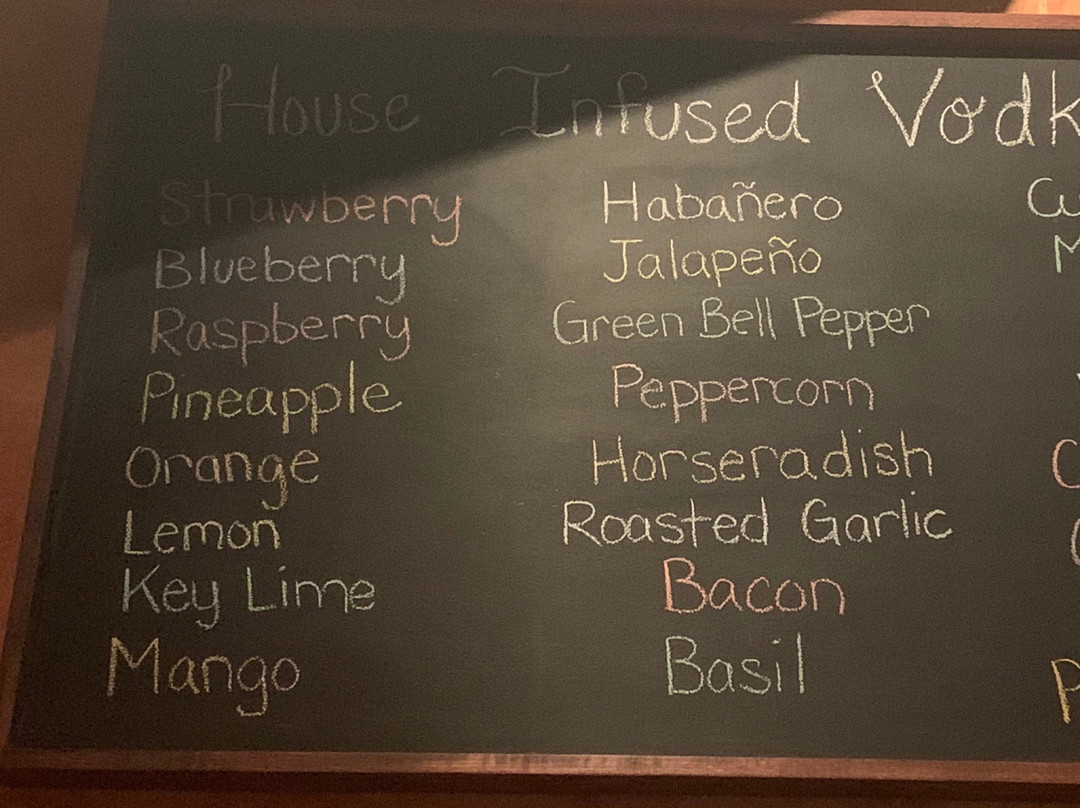 House Infused Vodk
Strawberry
Blueberry
Raspberry
Pineapple
Orange
Lemon
Key Lime
Mango
Habañero
Jalapeño
Green Bell Pepper
Peppercorn
Horseradish
Roasted Garlic
Bacon
Basil
Cu
M
C
P